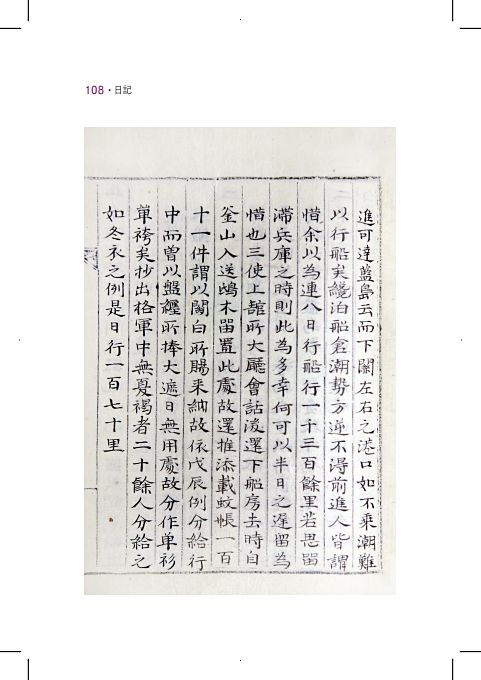 108・日記
進可達藍島云而下關左右之港口如不乘潮難
以行船矣纔泊船倉潮勢方逆不得前進人皆謂
惜余以爲連八日行船行一千三百餘里若思留
滯兵庫之時則此爲多幸何可以半日之遲留爲
惜也三使上館所大廳會話後還下船房去時自
釜山入送鴟木留置此處故還推添載蚊帳一百
十一件謂以關白所賜来納故依戊辰例分給行
中而曾以盤纏所捧大遮日無用處故分作单衫
單袴矣抄出格軍中無夏褐者二十餘人分給之
如冬衣之例是日行一百七十里